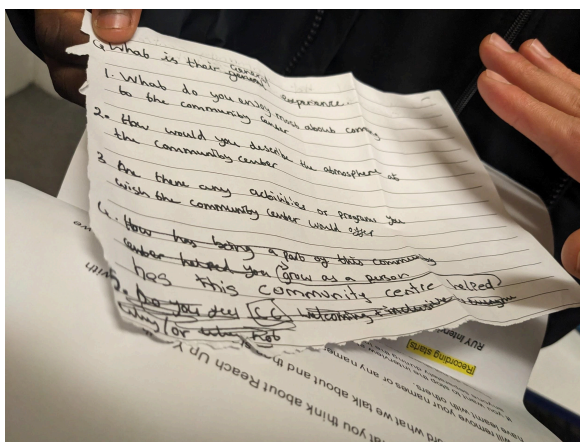 G. What is their general experience..
1. What do you enjoy most about coming
to the community center
2. How would you describe the atmosphere of
the community center
3. Are there any activities or programs you
wish the community center would offer
4. How has being a part of this community
center helped you grow as a person
has this community centre helped
5. Do you feel CC welcoming + inclusive
why/or why not
RUY Interv
[Recording starts]
remove your names or any name
ord what we talk about and th
at you think about Reach Up Y